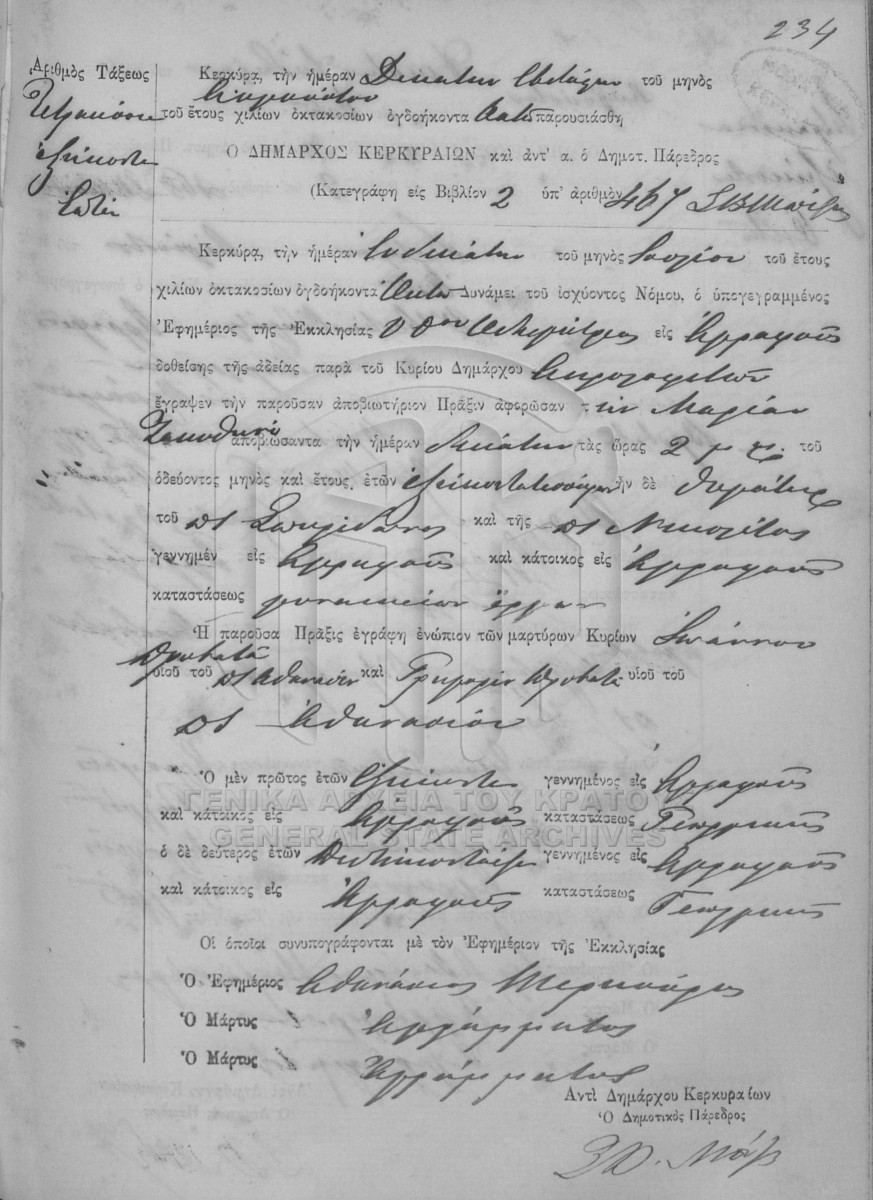 234
Ἀριθμὸς Τάξεως
Κερκύρα, τὴν ἡμέραν Δεκάτην ἑβδόμην τοῦ μηνὸς
τοῦ ἔτους χιλίων ὀκτακοσίων ὀγδοήκοντα Ὀκτὼ παρουσιάσθη
Ὁ ΔΗΜΑΡΧΟΣ ΚΕΡΚΥΡΑΙΩΝ καὶ ἀντ' α. ὁ Δημοτ. Πάρεδρος
Τετρακόσια
ἑξήκοντα
ἑπτά
(Κατεγράφη εἰς Βιβλίον 2 ὑπ' ἀριθμὸν 467
Κερκύρα, τὴν ἡμέραν ἑνδεκάτην τοῦ μηνὸς Ἰουλίου τοῦ ἔτους
χιλίων ὀκτακοσίων ὀγδοήκοντα Ὀκτὼ Δυνάμει τοῦ ἰσχύοντος Νόμου, ὁ ὑπογεγραμμένος
Ἐφημέριος τῆς Ἐκκλησίας εἰς Ἀγραφοὺς
δοθείσης τῆς ἀδείας παρὰ τοῦ Κυρίου Δημάρχου
ἔγραψεν τὴν παροῦσαν ἀποβιωτήριον Πρᾶξιν ἀφορῶσαν τὴν Μαρίαν
ἀποβιώσαντα τὴν ἡμέραν δεκάτην τὰς ὥρας 2 μ. μ. τοῦ
ὁδεύοντος μηνὸς καὶ ἔτους, ἐτῶν ἦν δὲ θυγάτηρ
τοῦ ποτὲ Σπυρίδωνος καὶ τῆς ποτὲ Νικολέτας
γεννημέν εἰς Ἀγραφοὺς καὶ κάτοικος εἰς Ἀγραφοὺς
καταστάσεως γυναικείων ἔργων
Ἡ παροῦσα Πρᾶξις ἐγράφη ἐνώπιον τῶν μαρτύρων Κυρίων Ἰωάννου
Προβατᾶ
υἱοῦ τοῦ ποτὲ Ἀθανασίου καὶ Γρηγορίου Προβατᾶ υἱοῦ τοῦ
ποτὲ Ἀθανασίου
Ὁ μὲν πρῶτος ἐτῶν ἑξήκοντα γεννημένος εἰς Ἀγραφοὺς
καὶ κάτοικος εἰς Ἀγραφοὺς καταστάσεως Γεωργικῆς
ὁ δὲ δεύτερος ἐτῶν γεννημένος εἰς Ἀγραφοὺς
καὶ κάτοικος εἰς Ἀγραφοὺς καταστάσεως Γεωργικῆς
Οἱ ὁποῖοι συνυπογράφονται μὲ τὸν Ἐφημέριον τῆς Ἐκκλησίας
Ὁ Ἐφημέριος Ἀθανάσιος
Ὁ Μάρτυς Ἀγράμματος
Ὁ Μάρτυς Ἀγράμματος
Ἀντὶ Δημάρχου Κερκυραίων
Ὁ Δημοτικὸς Πάρεδρος
ΓΕΝΙΚΑ ΑΡΧΕΙΑ ΤΟΥ ΚΡΑΤΟΥΣ
GENERAL STATE ARCHIVES